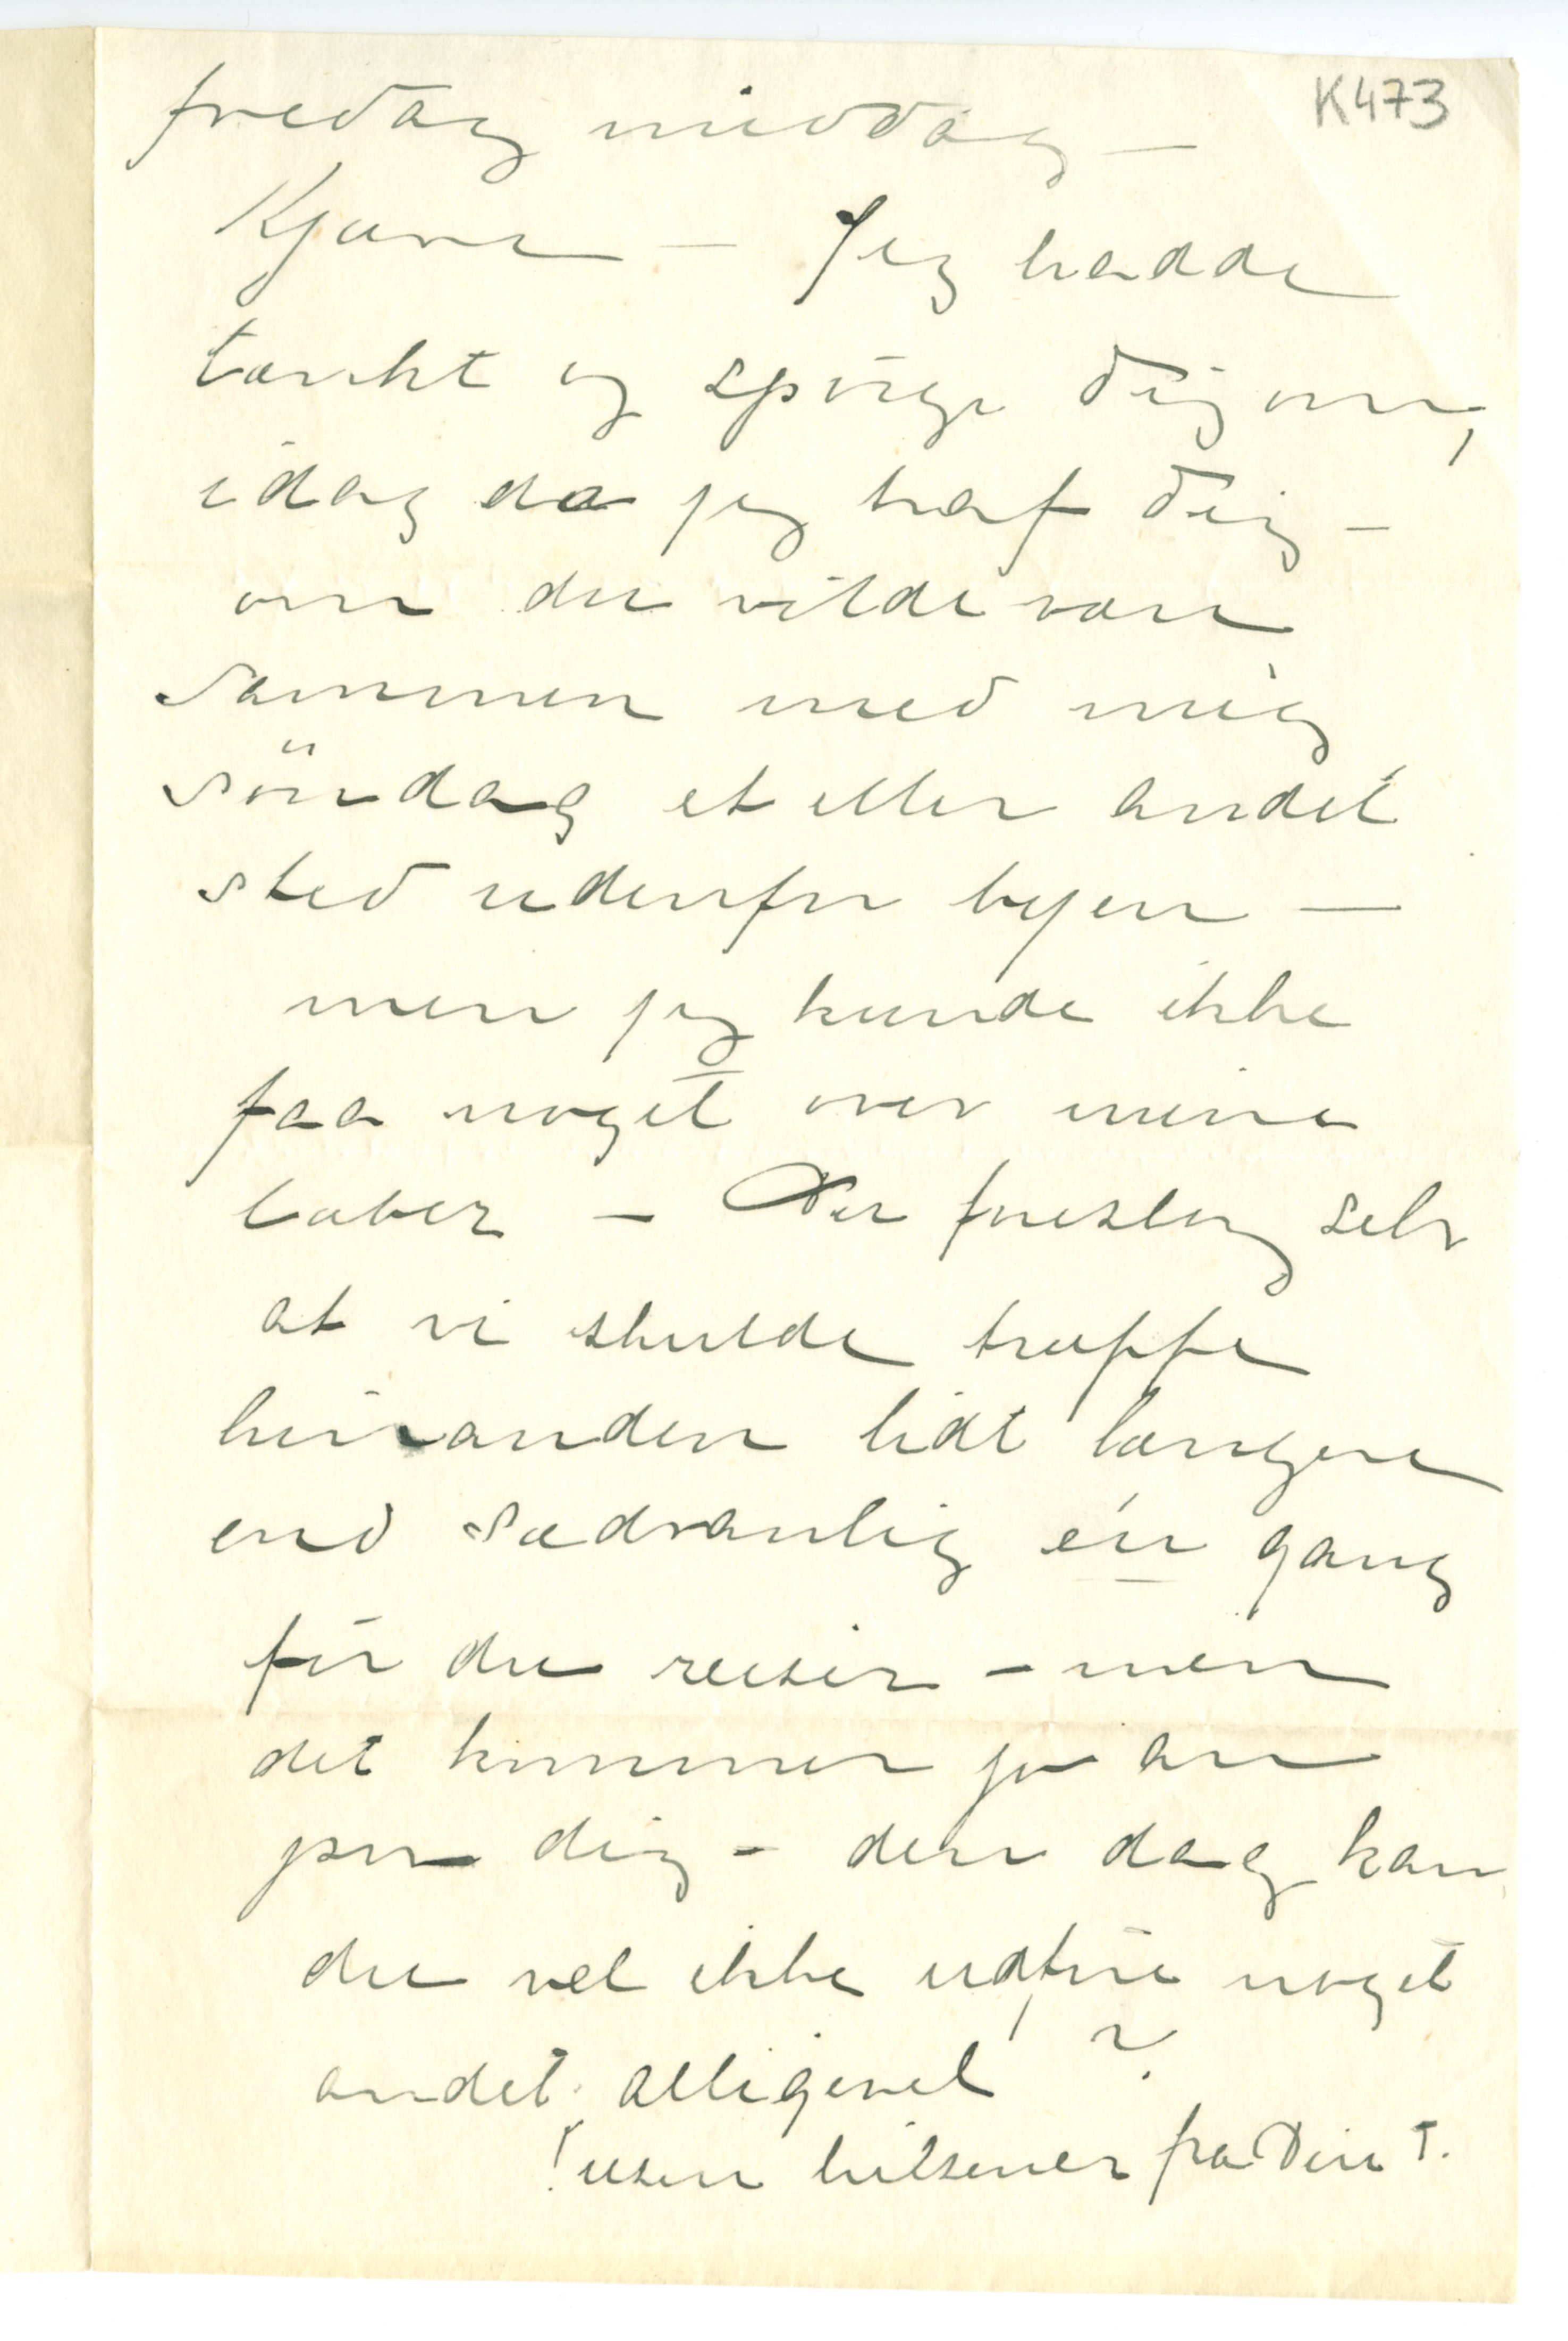 K473
fredag middag —
Kjære — Jeg hadde
tænkt og spörge dig om,
idag da jeg traf dig —
om du vilde være
sammen med mig
söndag et eller andet
sted udenfor byen —
men jeg kunde ikke
faa noget over mine
læber — Du foreslog selv
at vi skulde træffe
hinanden lidt længere
end sædvanlig én gang
för du reiser — men
det kommer jo an
paa dig — den dag kan
du vel ikke udföre noget
andet alligevel ?
Tusen hilsener fra Din T.